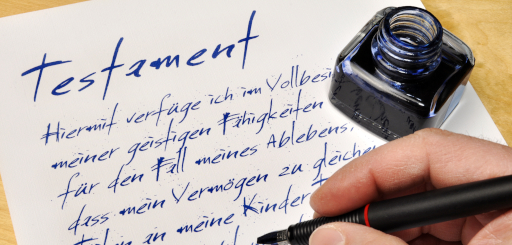 Testament
Hiermit verfüge ich im Vollbesi
meiner geistigen Fähigkeiten
für den Fall meines Ablebens,
dass mein Vermögen zu gleichen
Teilen an meine Kinder